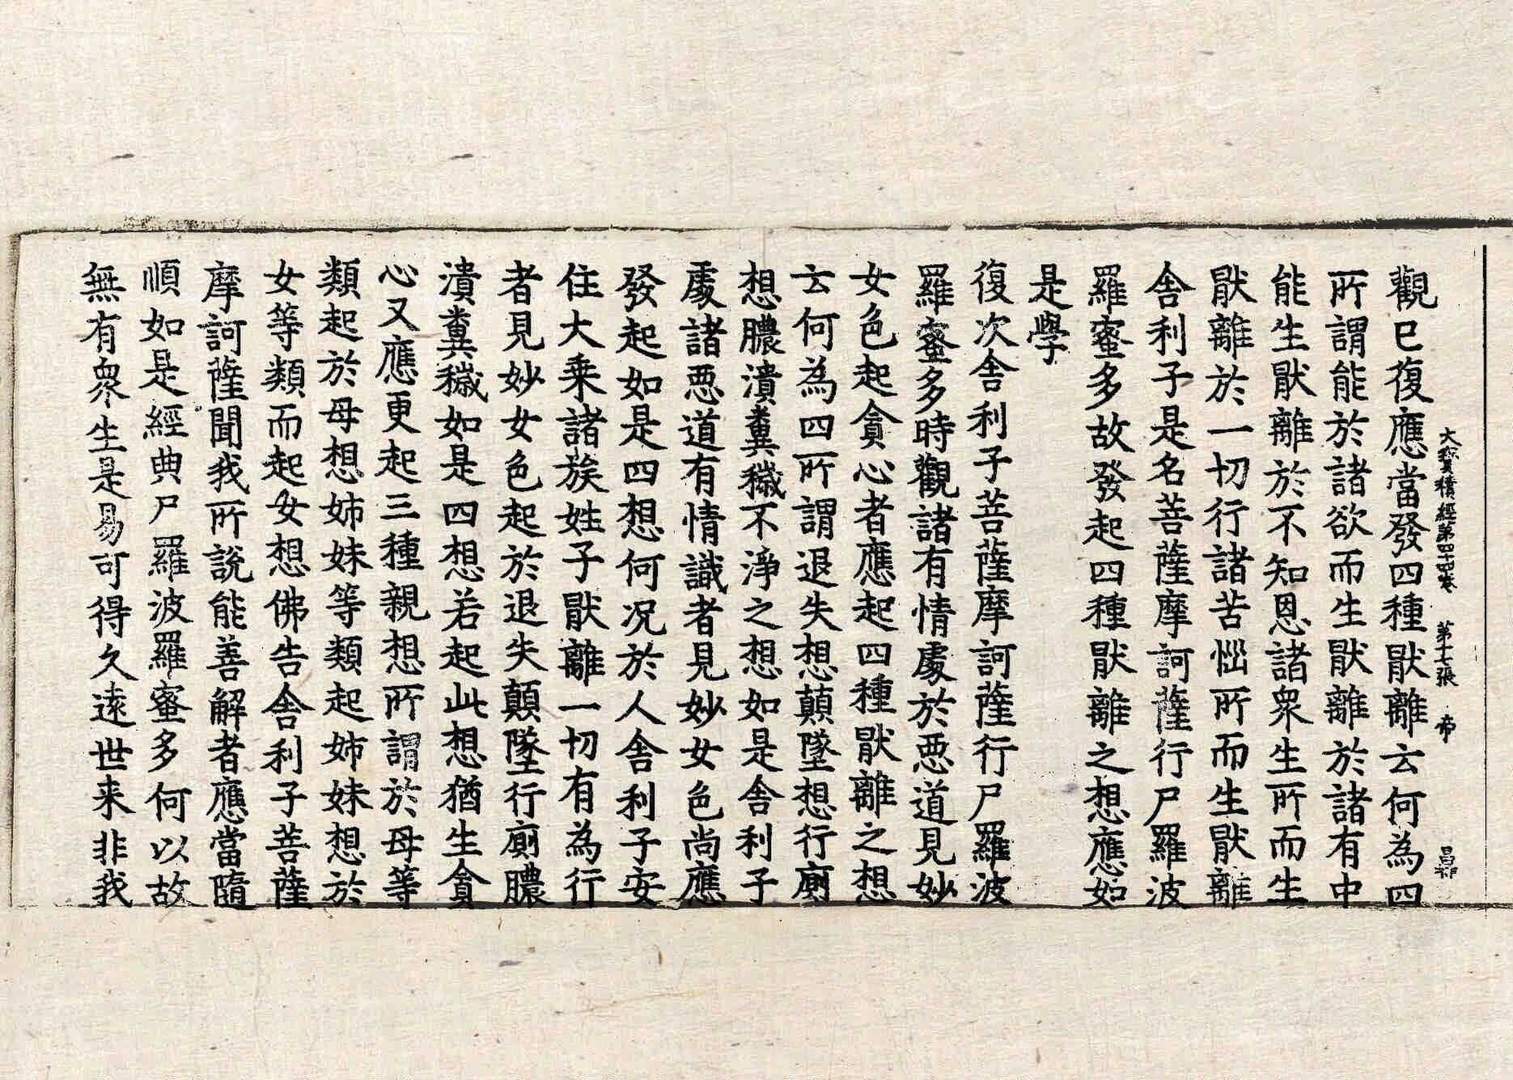 大寶積經第四十四卷　第十七張　帝　昌
觀已復應當發四種猒離云何為四
所謂能於諸欲而生猒離於諸有中
能生猒離於不知恩諸衆生所而生
猒離於一切行諸苦惱所而生猒離
舍利子是名菩薩摩訶薩行尸羅波
羅蜜多故發起四種猒離之想應如
是學
復次舍利子菩薩摩訶薩行尸羅波
羅蜜多時觀諸有情處於惡道見妙
女色起貪心者應起四種猒離之想
云何為四所謂退失想顛墜想行廁
想膿潰糞穢不淨之想如是舍利子
處諸惡道有情識者見妙女色尚應
發起如是四想何况於人舍利子安
住大乘諸族姓子猒離一切有為行
者見妙女色起於退失顛墜行廁膿
潰糞穢如是四想若起此想猶生貪
心又應更起三種親想所謂於母等
類起於母想姉妹等類起姉妹想於
女等類而起女想佛告舍利子菩薩
摩訶薩聞我所說能善解者應當隨
順如是經典尸羅波羅蜜多何以故
無有衆生是易可得久遠世来非我